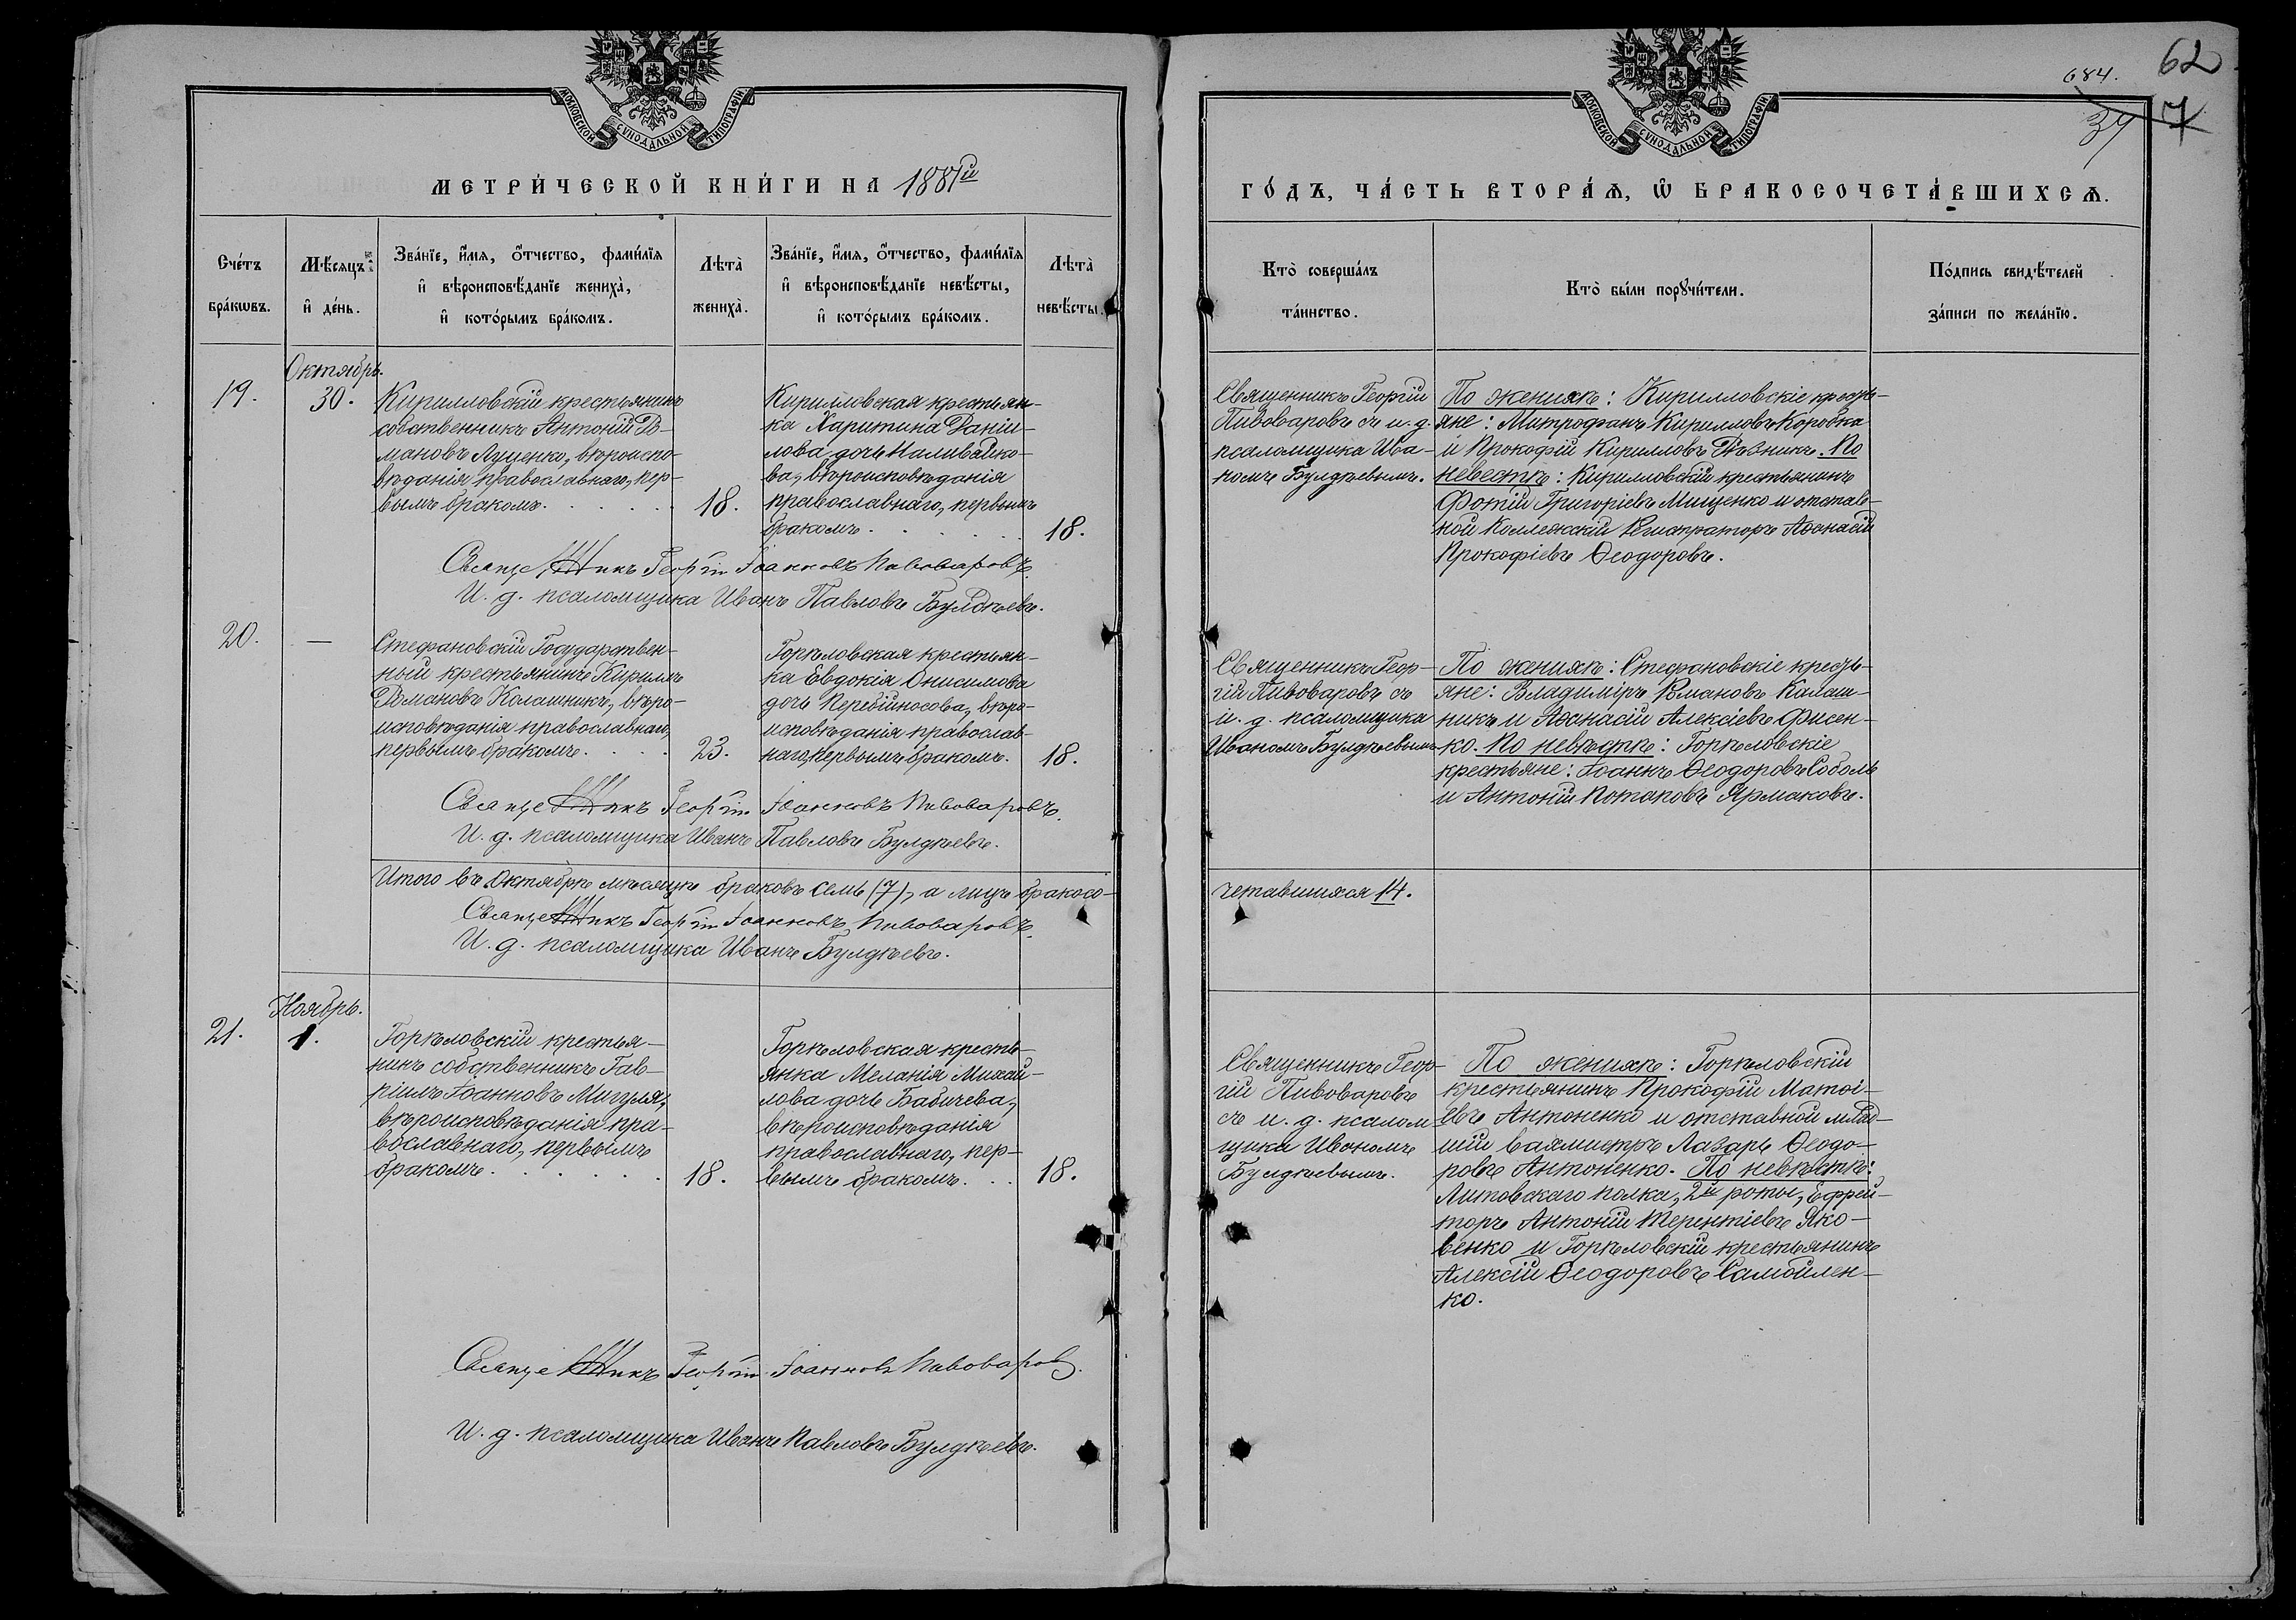 МОСКОВСКОЙ СУНОДАЛЬНОЙ ТИПОГРАФІИ
МЕТРИ́ЧЕСКОЙ КНИ́ГИ НА 1881й
Сче́тъ бра́кѡвъ.
Мѣ́сяцъ и҆ де́нь.
Зва́нїе, и҆́мя, ѻ҆́тчество, фами́лїя
и҆ вѣроисповѣ́данїе жениха̀,
и҆ кото́рымъ бра́комъ.
Лѣ́та жениха̀.
Зва́нїе, и҆́мя, ѻ҆́тчество, фами́лїя
и҆ вѣроисповѣ́данїе невѣ́сты,
и҆ кото́рымъ бра́комъ.
Лѣ́та невѣ́сты.
Октябрь.
19.
30.
Кирилловскій крестьянинъ
собственникъ Антоній Ро-
мановъ Луценко, вѣроиспо-
вѣданія православнаго, пер-
вымъ бракомъ.
18.
Кирилловская крестьян-
ка Харитина Даніи-
лова дочь Наливайко-
ва, вѣроисповѣданія
православнаго, первымъ
бракомъ.
18.
Священникъ Георгій Іоанновъ Пивоваровъ.
И. д. псаломщика Иванъ Павловъ Булдѣевъ.
20.
—
Стефановскій Государствен-
ный крестьянинъ Кириллъ
Романовъ Калашникъ, вѣро-
исповѣданія православнаго,
первымъ бракомъ.
23.
Горѣловская крестьян-
ка Евдокія Онисимова
дочь Перебійносова, вѣро-
исповѣданія православ-
наго, первымъ бракомъ.
18.
Священникъ Георгій Іоанновъ Пивоваровъ.
И. д. псаломщика Иванъ Павловъ Булдѣевъ.
Итого въ Октябрѣ мѣсяцѣ браковъ семь (7), а лицъ бракосо-
Священникъ Георгій Іоанновъ Пивоваровъ.
И. д. псаломщика Иванъ Булдѣевъ.
Ноябрь.
21.
1.
Горѣловскій крестья-
нинъ собственникъ Гав-
ріилъ Іоанновъ Мигуля,
вѣроисповѣданія пра-
вославнаго, первымъ
бракомъ.
18.
Горѣловская кресть-
янка Меланія Михай-
лова дочь Бабичева,
вѣроисповѣданія
православнаго, пер-
вымъ бракомъ.
18.
Священникъ Георгій Іоанновъ Пивоваровъ.
И. д. псаломщика Иванъ Павловъ Булдѣевъ.
684.
62
39
7
МОСКОВСКОЙ СУНОДАЛЬНОЙ ТИПОГРАФІИ
ГО́ДЪ, ЧА́СТЬ ВТОРА́Ѧ, Ѡ҆ БРАКОСОЧЕТА́ВШИХСѦ.
Кто̀ соверша́лъ
та́инство.
Кто̀ бы́ли порꙋчи́тели.
По́дпись свидѣ́телей
за́писи по жела́нїю.
Священникъ Георгій
Пивоваровъ съ и. д.
псаломщика Ива-
номъ Булдѣевымъ.
По женихѣ: Кирилловскіе кресть-
яне: Митрофанъ Кирилловъ Коровка
и Прокофій Кирилловъ Пивникъ. По
невестѣ: Кирилловскій крестьянинъ
Фотій Григоріевъ Мищенко и отстав-
ной Коллежскій Регистраторъ Аѳанасій
Прокофіевъ Ѳеодоровъ.
Священникъ Геор-
гій Пивоваровъ съ
и. д. псаломщика
Иваномъ Булдѣевымъ
По женихѣ: Стефановскіе кресть-
яне: Владиміръ Романовъ Калаш-
никъ и Аѳанасій Алексіевъ Фисен-
ко. По невѣстѣ: Горѣловскіе
крестьяне: Іоаннъ Ѳеодоровъ Соболь
и Антоній Потаповъ Ярмаковъ.
четавшихся 14.
Священникъ Геор-
гій Пивоваровъ
съ и. д. псалом-
щика Иваномъ
Булдѣевымъ.
По женихѣ: Горѣловскій
крестьянинъ Прокофій Матѳі-
евъ Антоненко и отставной млад-
шій вахмистръ Лазарь Ѳеодо-
ровъ Антоненко. По невѣстѣ:
Литовскаго полка, 2й роты, Ефрей-
торъ Антоній Терентіевъ Яко-
венко и Горѣловскій крестьянинъ
Алексій Ѳеодоровъ Самойлен-
ко.